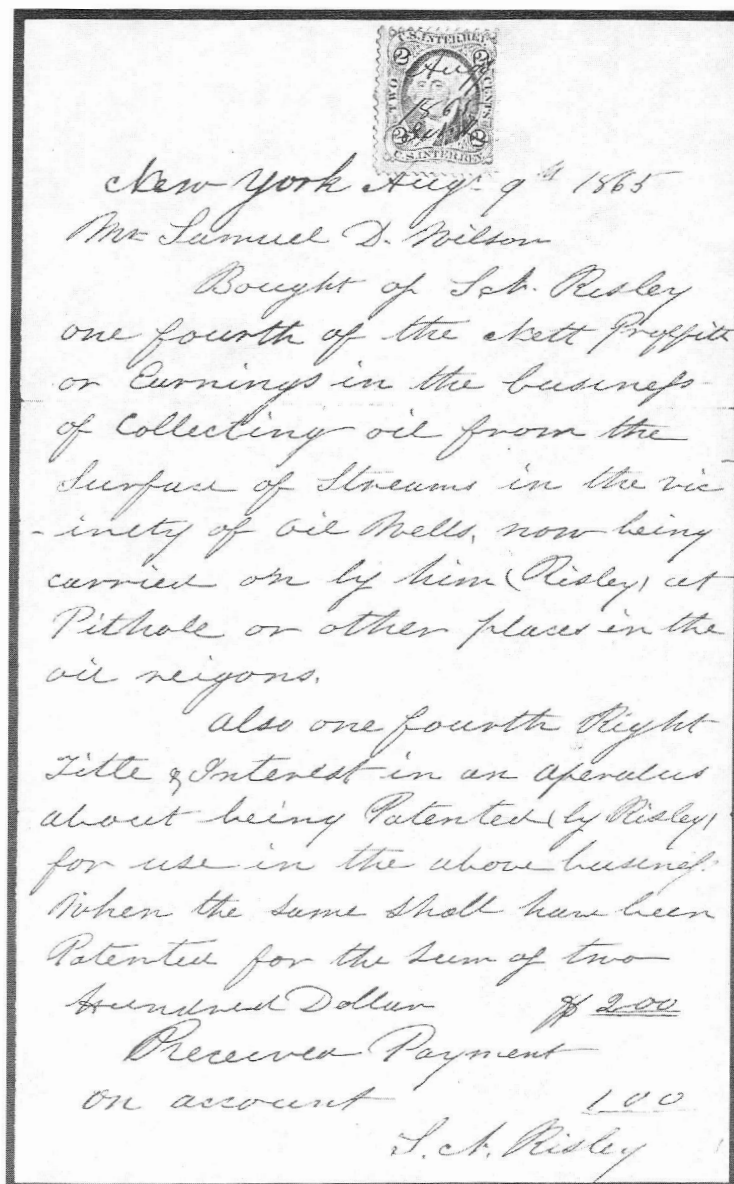 U.S. INTER. REV.
2 2
TWO CENTS
Aug
1865
2 2
U.S. INTER. REV.
New York Aug. 9th 1865
Mr Samuel D. Wilson
Bought of S. N. Risley
one fourth of the Nett Proffitt
or Earnings in the business
of Collecting oil from the
Surface of Streams in the vic
-inety of oil Wells, now being
carried on by him (Risley) at
Pithole or other places in the
oil reigons.
also one fourth Right
Title & Interest in an aperatus
about being Patented (by Risley)
for use in the above business
When the same shall have been
Patented for the sum of two
Hundred Dollar $ 200
Received Payment
on account 100
S. N. Risley